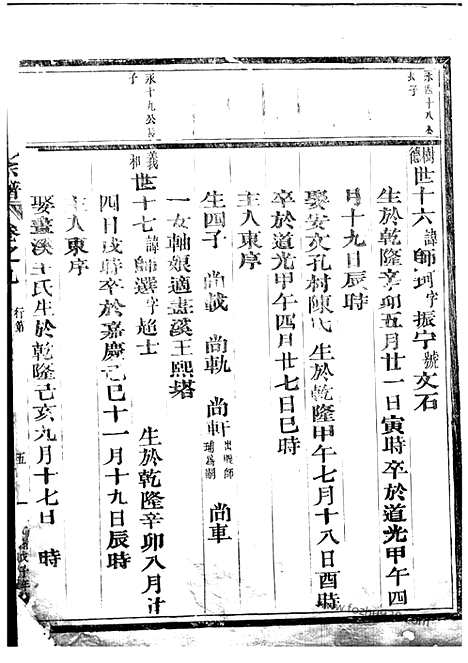 永四十八公長子
樹德 世十六 諱師珂字振宁號文石
生於乾隆辛卯五月廿一日寅時卒於道光甲午四
月十九日辰時
娶安文孔村陳氏 生於乾隆甲午七月十八日酉時
卒於道光甲午四月廿七日巳時
主入東序
生四子 尚載 尚軌 尚軒 出繼師瑀爲嗣 尚車
一女軸娘適畫溪王熙塔
永十九公長子
義和 世十七 諱師選字超士 生於乾隆辛卯八月廿
四日戌時卒於嘉慶己巳十一月十九日辰時
主入東序
娶畫溪王氏生於乾隆己亥九月十七日 時
宗譜 卷之九 行第 五
www.fozhu920.com